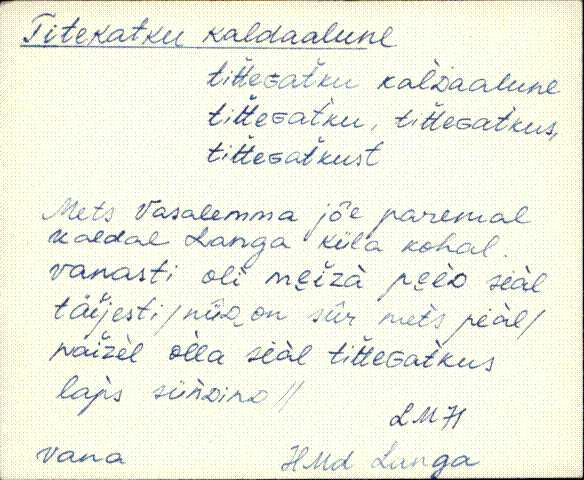 Titekatku kaldaalune
tit́t́eɢat́ku kalᴅaalune
tit́t́eɢat́ku, tit́t́eɢat́kus,
tit́t́eɢat́kust
Mets Vasalemma jõe paremal
kaldal Langa küla kohal.
vanasti oli mẹizà pẹèᴅ seàl
täijesti / nüᴅ on sûr mets peàl /
näizèl òlla seàl tit́t́eɢat́kus
laps sünᴅinᴅ //
LMH
vana HMd Langa